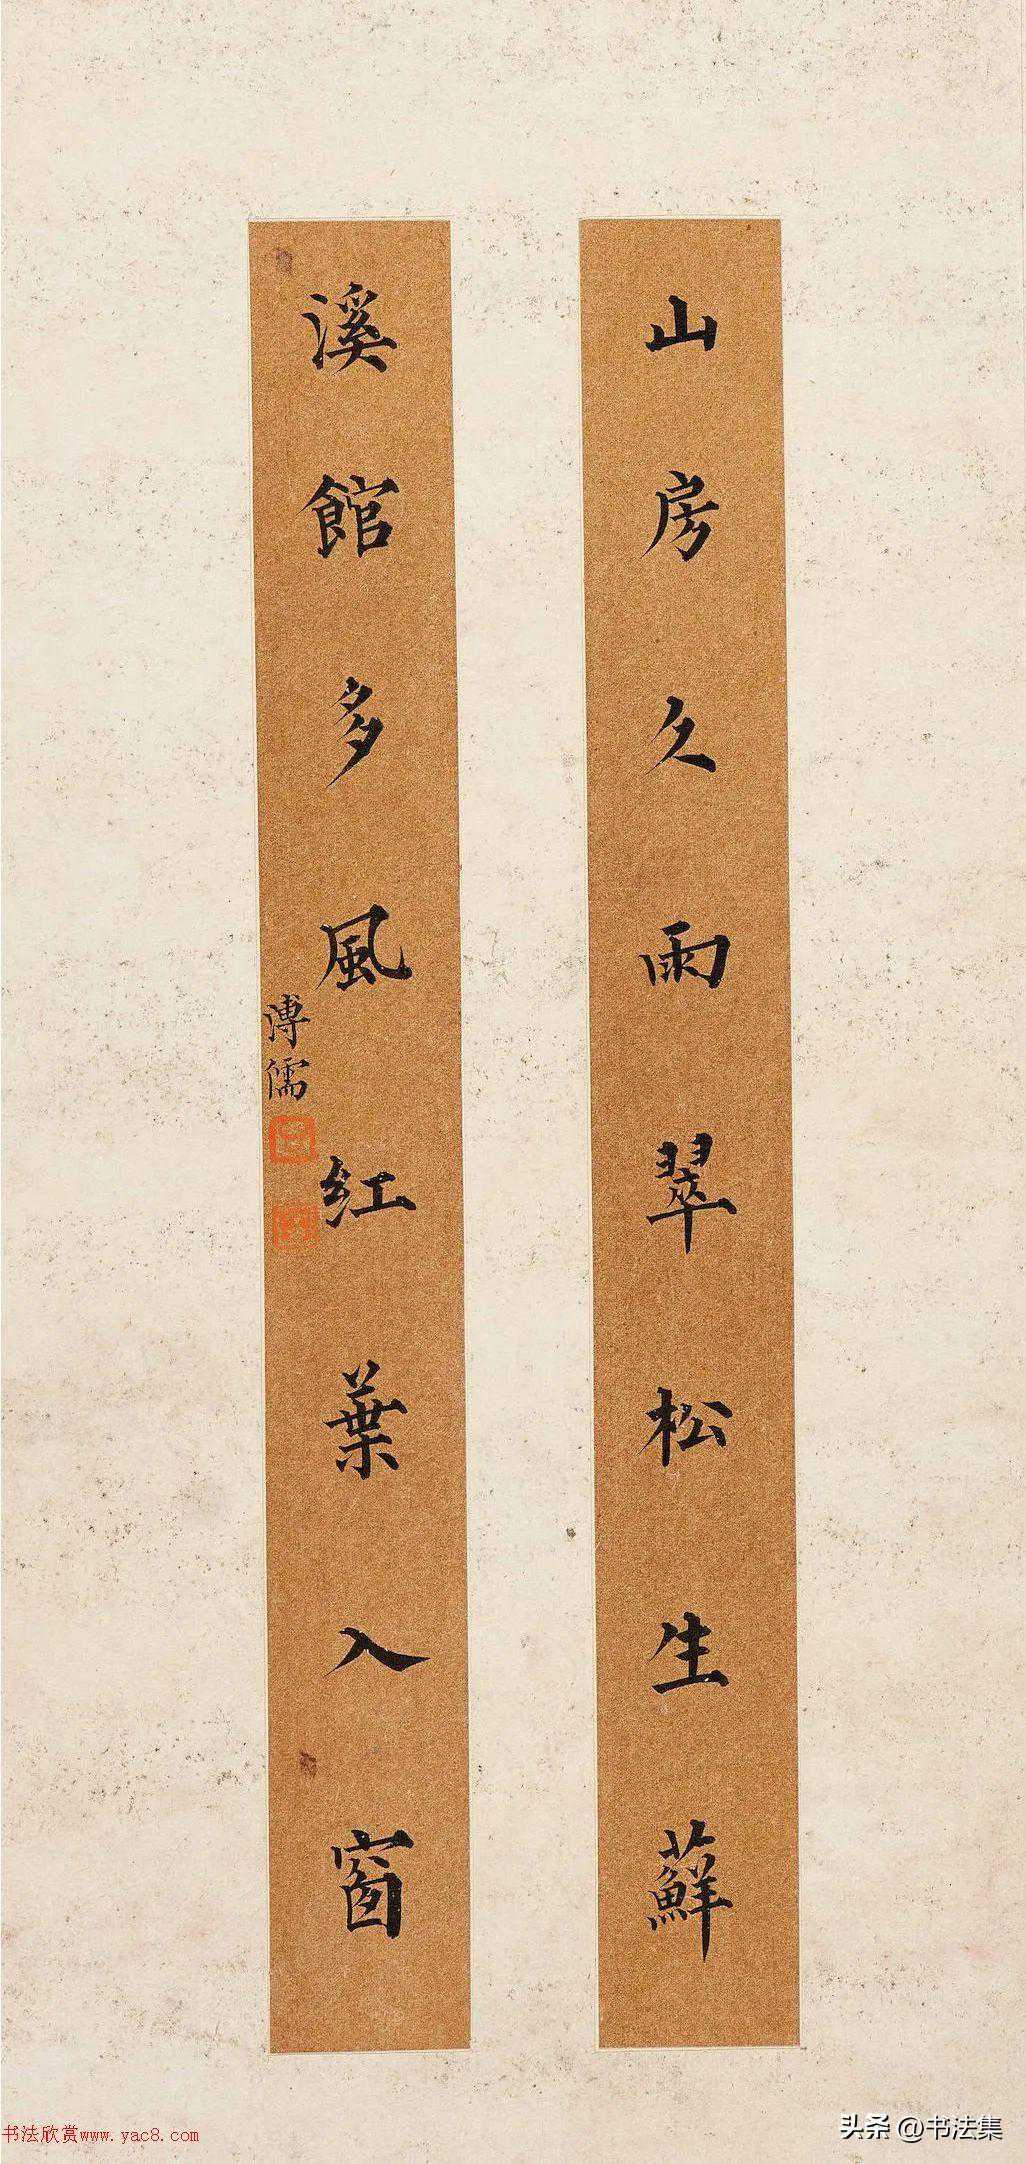 山房久雨翠松生蘚
溪館多風紅葉入窗
溥儒
书法欣赏www.yac8.com
头条 @书法集